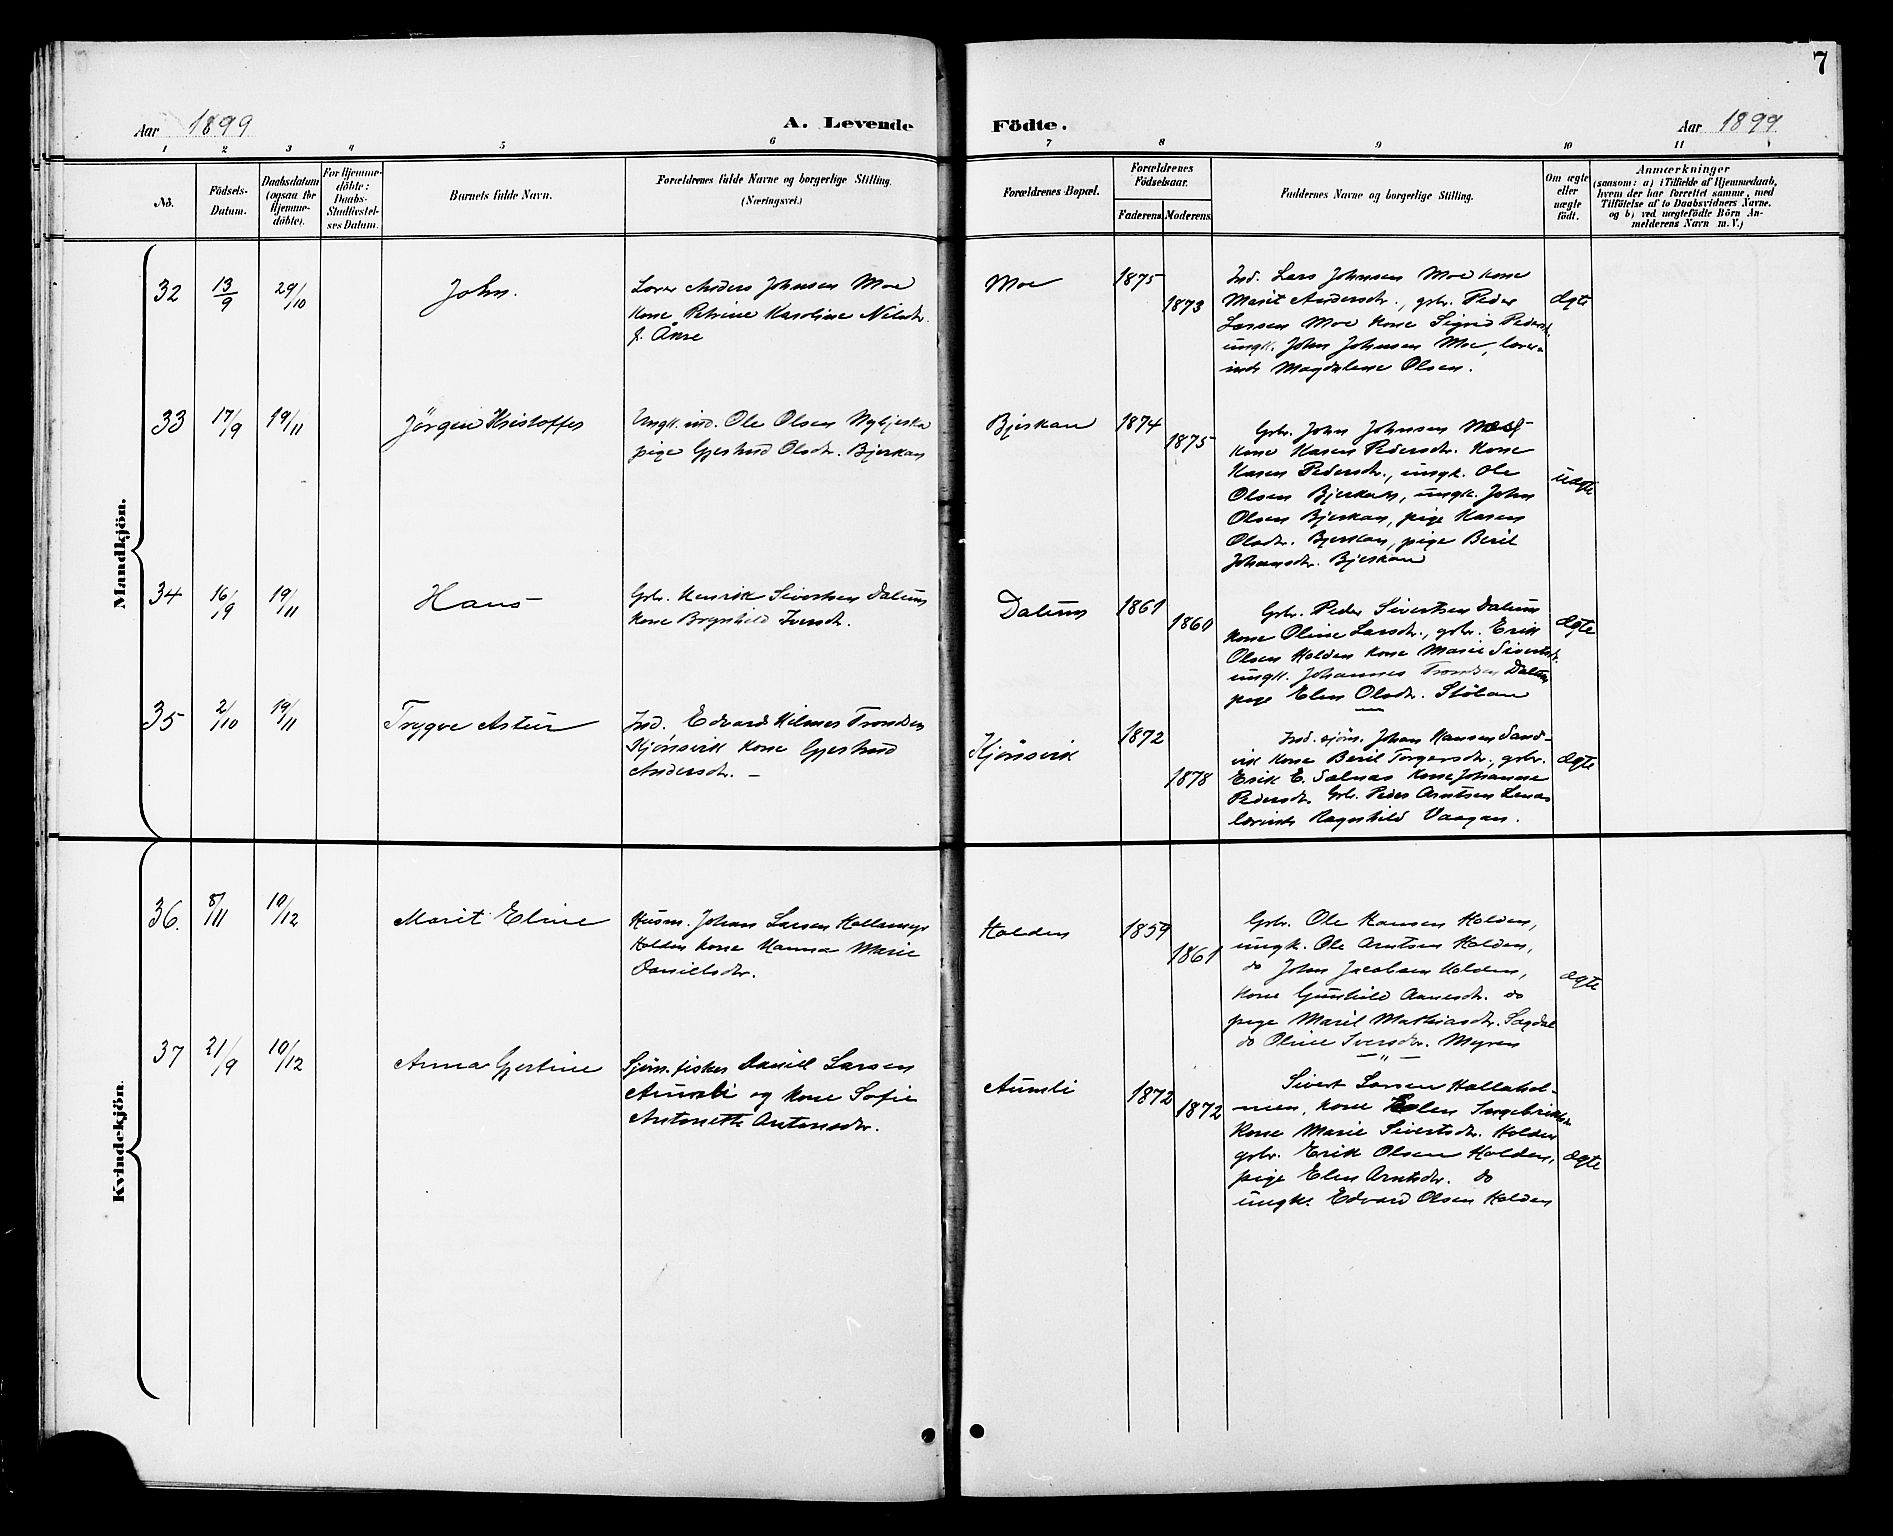 7
Aar 1899
A. Levende
Födte.
Aar 1899
1 2 3 4 5 6 7 8 9 10 11
No.
Födsels-
Datum.
Daabsdatum
(ogsaa for
Hjemme-
döbte).
For Hjemme-
döbte:
Daabs-
Stadfæstel-
ses Datum.
Barnets fulde Navn.
Forældrenes fulde Navne og borgerlige Stilling.
(Næringsvei.)
Forældrenes Bopæl.
Forældrenes
Födselsaar.
Faderens. Moderens.
Faddernes Navne og borgerlige Stilling.
Om ægte
eller
uægte
födt.
Anmærkninger
(saasom: a) i Tilfælde af Hjemmedaab,
hvem der har forrettet samme, med
Tilföielse af to Daabsvidners Navne.
og b) ved uægtefödte Börn An-
melderens Navn m. V.)
Mandkjön.
32
13/9
29/10
John.
Lærer Anders Johnsen Moe
kone Petrine Karoline Nilsdr.
f. Åkre
Moe
1875
1873
Ind. Lars Johnsen Moe kone
Marit Andersdr., gbr. Peder
Larsen Moe kone Sigrid Pedersdr.
ungk. John Johnsen Moe, lærer-
inde Magdalene Olsen.
ægte
33
17/9
19/11
Jörgen Kristoffer
Ungk. ind. Ole Olsen
pige Gjertrud Olsdr. Bjerkan
Bjerkan
1874
1875
Gbr. John Johnsen
kone Karen Pedersdr. kone
Karen Pedersdr., ungk. Ole
Olsen Bjerkan, ungk. John
Olsen Bjerkan, pige Karen
Olsdr. Bjerkan, pige Beret
Johansdr. Bjerkan
uægte
34
16/9
19/11
Hans
Gbr. Henrik Sivertsen Dalum
kone Brynhild Iversdr.
Dalum
1861
1860
Gbr. Peder Sivertsen Dalum
kone Oline Larsdr., gbr. Erik
Olsen Holden kone Marie Sivertsdr.
ungk. Johannes Trondsen Dalum
pige Elen Olsdr. Stölan
ægte
35
2/10
19/11
Trygve Astur
Ind. Edvard Hilmer Trondsen
Kjönsvik kone Gjertrud
Andersdr. –
Kjönsvik
1872
1878
Ind. sjöm. Johan Hansen Sand-
vik kone Beret Torgersdr., gbr.
Erik E. Salnas kone Johanne
Pedersdr. Gbr. Peder Arntsen Lenas
lærinde Ragnhild Vaagan.
ægte
Kvindekjön.
36.
8/11
10/12
Marit Eline
Husm. Johan Larsen
Holden kone Hanna Marie
Danielsdr.
Holden
1859
1861
Gbr. Ole Hansen Holden,
ungk. Ole Arntsen Holden,
do John Jacobsen Holden,
kone Gunhild Aanesdr. do
pige Marit Mathiasdr. Sagdal
do Oline Iversdr. Myren
ægte
37
21/9
10/12
Anna Gjertine
Sjöm. fisker Daniel Larsen
Aunli og kone Sofie
Antonette Antonsdr.
Aunli
1872
1872
Sivert Larsen Hallahol-
men, kone Elen Ingebrigtsdr.
kone Marie Sivertsdr. Holden
gbr. Erik Olsen Holden,
pige Elen Arntsdr. do
ungk. Edvard Olsen Holden
ægte